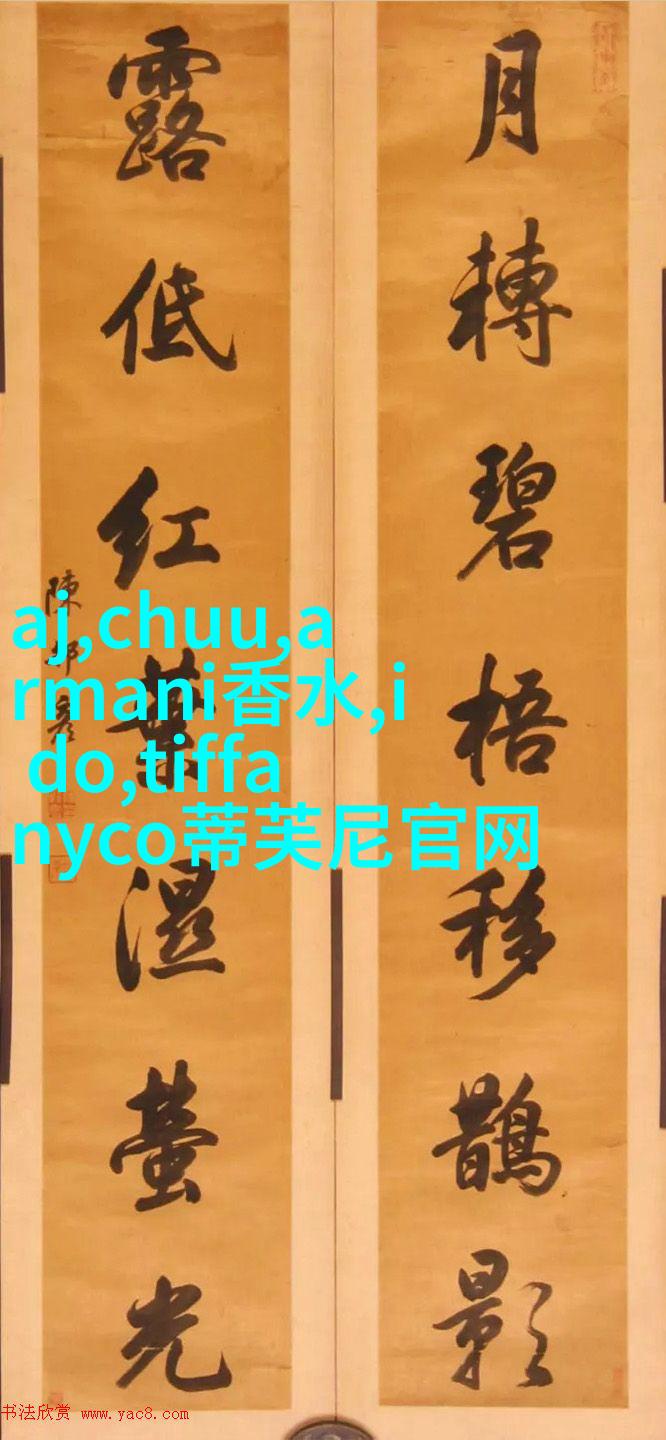 月轉碧梧移鵲影
露低红葉濕螢光
陳邦彦
aj,chuu,a
rmani香水,i
do,tiffa
nyco蒂芙尼官网
书法欣赏 www.yac8.com